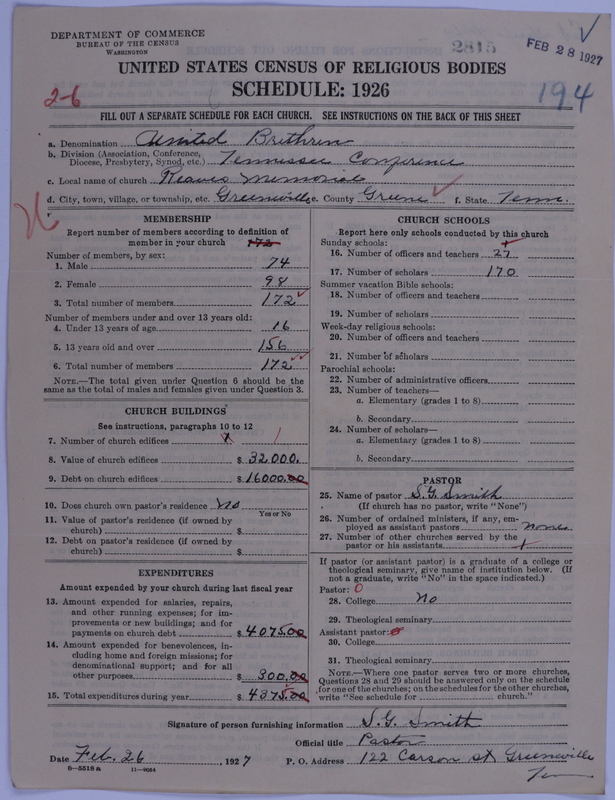 DEPARTMENT OF COMMERCE
BUREAU OF THE CENSUS
WASHINGTON
2815
FEB 28 1927
UNITED STATES CENSUS OF RELIGIOUS BODIES
SCHEDULE: 1926
2-6
194
FILL OUT A SEPARATE SCHEDULE FOR EACH CHURCH. SEE INSTRUCTIONS ON THE BACK OF THIS SHEET
a. Denomination United Brethren
b. Division (Association, Conference, Diocese, Presbytery, Synod, etc.) Tennessee Conference
c. Local name of church Reaves Memorial
d. City, town, village, or township, etc. Greeneville e. County Greene f. State Tenn.
MEMBERSHIP
Report number of members according to definition of
member in your church 172
Number of members, by sex:
1. Male 74
2. Female 98
3. Total number of members 172
Number of members under and over 13 years old:
4. Under 13 years of age 16
5. 13 years old and over 156
6. Total number of members 172
NOTE.—The total given under Question 6 should be
same as the total of males and females given under Question 3.
CHURCH BUILDINGS
See instructions, paragraphs 10 to 12
7. Number of church edifices 1
8. Value of church edifices $ 32000.
9. Debt on church edifices $ 16000.00
10. Does church own pastor's residence No
Yes or No
11. Value of pastor's residence (if owned by
church) $
12. Debt on pastor's residence (if owned by
church) $
EXPENDITURES
Amount expended by your church during last fiscal year
13. Amount expended for salaries, repairs,
and other running expenses; for im-
provements or new buildings; and for
payments on church debt $ 4075.00
14. Amount expended for benevolences, in-
cluding home and foreign missions; for
denominational support; and for all
other purposes $ 300.00
15. Total expenditures during year $ 4375.00
CHURCH SCHOOLS
Report here only schools conducted by this church
Sunday schools:
16. Number of officers and teachers 27
17. Number of scholars 170
Summer vacation Bible schools:
18. Number of officers and teachers
19. Number of scholars
Week-day religious schools:
20. Number of officers and teachers
21. Number of scholars
Parochial schools:
22. Number of administrative officers
23. Number of teachers—
a. Elementary (grades 1 to 8)
b. Secondary
24. Number of scholars—
a. Elementary (grades 1 to 8)
b. Secondary
PASTOR
25. Name of pastor S.G. Smith
(If church has no pastor, write "None")
26. Number of ordained ministers, if any, em-
ployed as assistant pastors none
27. Number of other churches served by the
pastor or his assistants
If pastor (or assistant pastor) is a graduate of a college or
theological seminary, give name of institution below. (If
not a graduate, write "No" in the space indicated.)
Pastor: 0
28. College No
29. Theological seminary
Assistant pastor:
30. College
31. Theological seminary
NOTE.—Where one pastor serves two or more churches,
Questions 28 and 29 should be answered only on the schedule
for one of the churches; on the schedules for the other churches,
write "See schedule for church."
Signature of person furnishing information S.G. Smith
Official title Pastor
Date Feb. 26, 1927 P. O. Address 122 Carson st Greeneville
Tenn
8—5518 a 11—9064